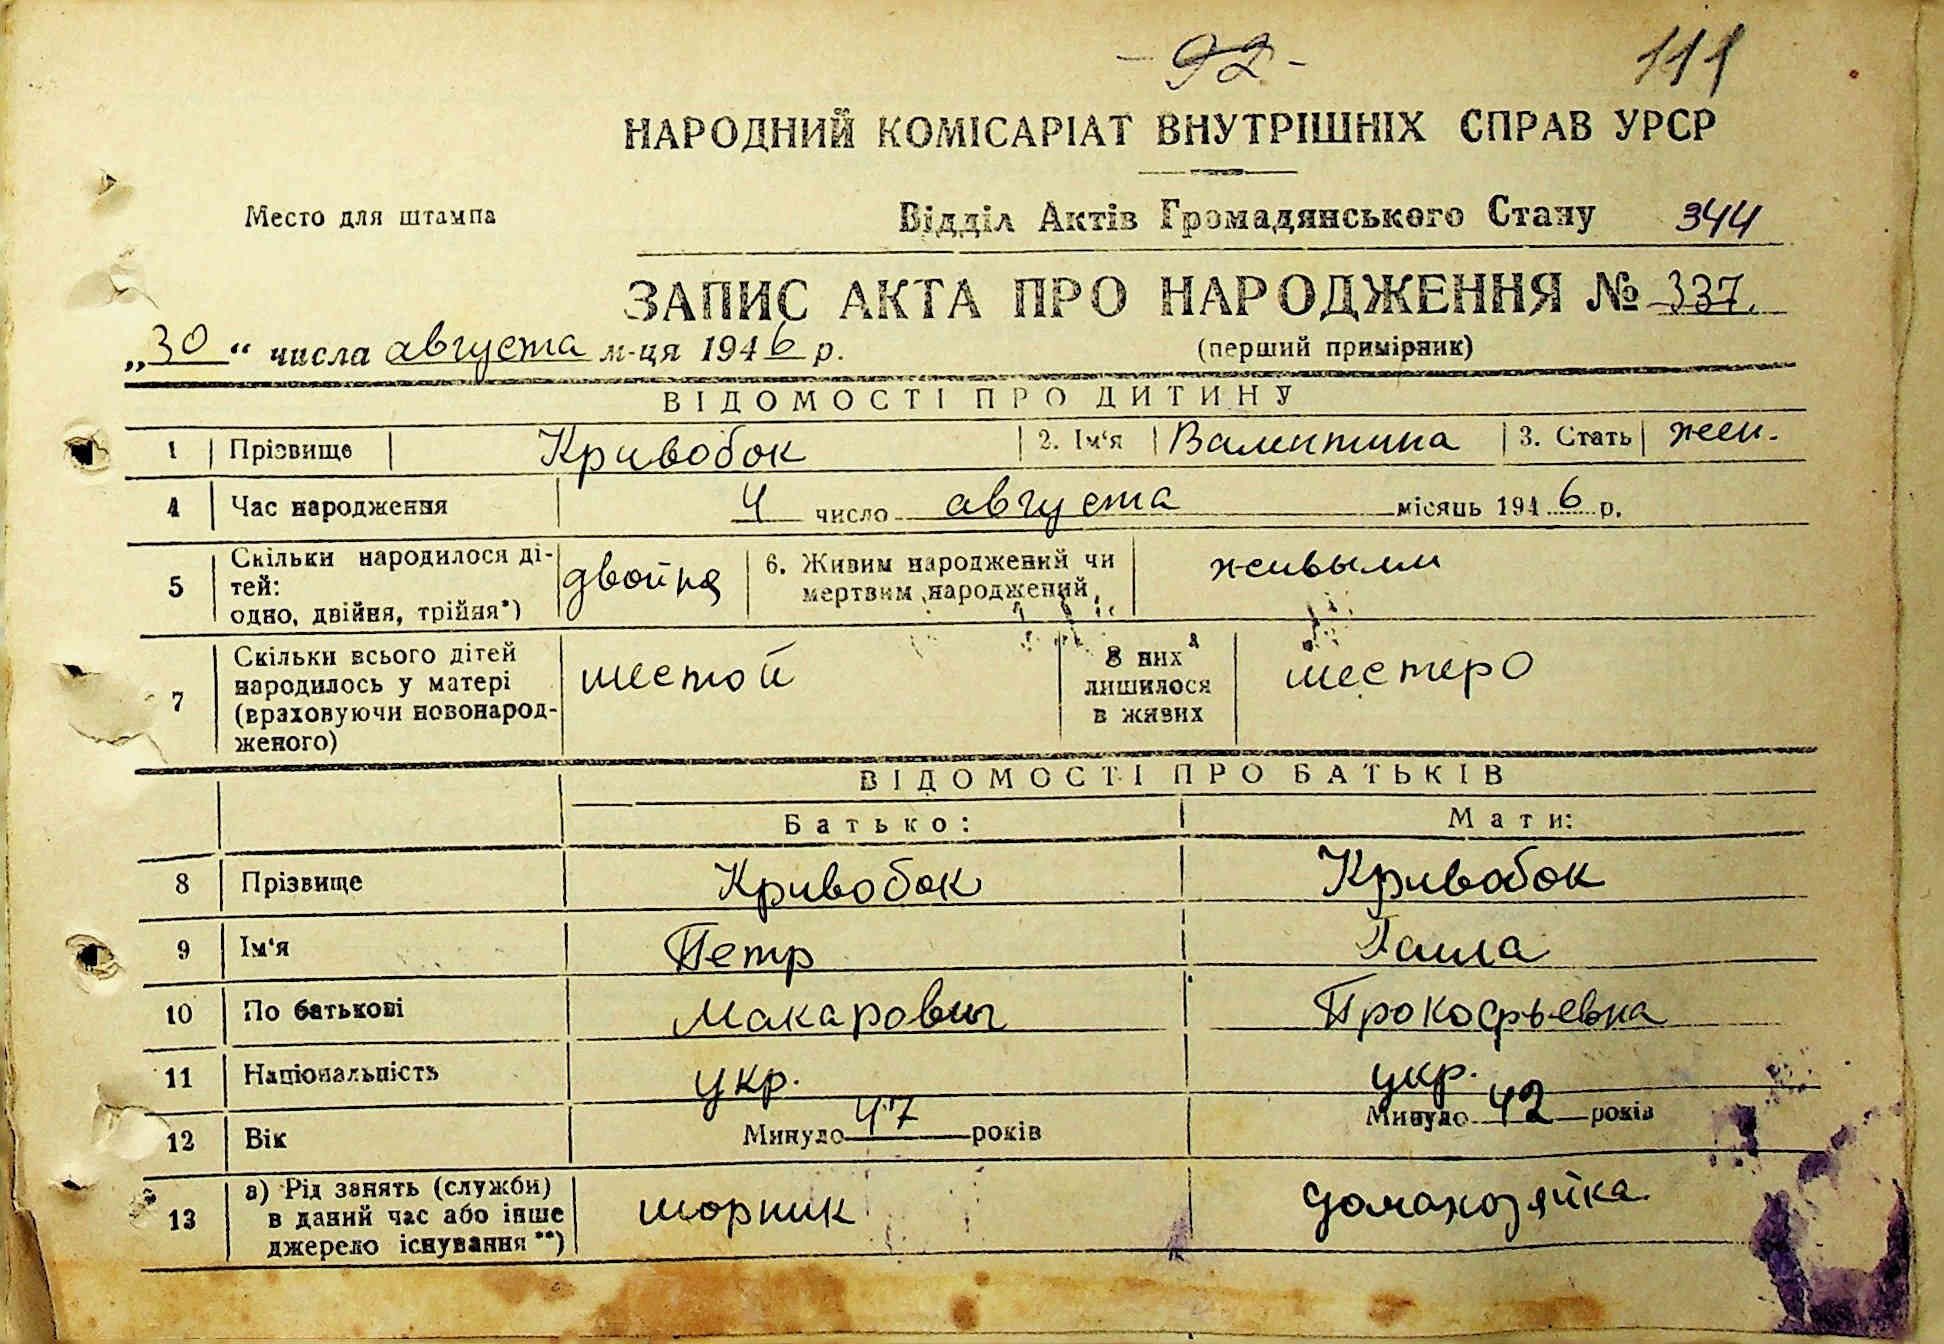 - 92 -
111
НАРОДНИЙ КОМІСАРІАТ ВНУТРІШНІХ СПРАВ УРСР
Место для штампа
Відділ Актів Громадянського Стану 344
ЗАПИС АКТА ПРО НАРОДЖЕННЯ № 337.
„30“ числа августа м-ця 1946 р.
(перший примірник)
ВІДОМОСТІ ПРО ДИТИНУ
1 Прізвище Кривобок 2. Ім'я Валентина 3. Стать жен.
4 Час народження 4 число августа місяць 1946 р.
5 Скільки народилося ді-
тей:
одно, двійня, трійня*) двойня
6. Живим народжений чи
мертвим народжений живыми
7 Скільки всього дітей
народилось у матері
(враховуючи новонарод-
женого) шестой
З них
лишилося
в живих шестеро
ВІДОМОСТІ ПРО БАТЬКІВ
Батько: Мати:
8 Прізвище Кривобок Кривобок
9 Ім'я Петр Ганна
10 По батькові Макарович Прокофьевна
11 Національність укр. укр.
12 Вік Минуло 47 років Минуло 42 років
13 а) Рід занять (служби)
в даний час або інше
джерело існування**) шорник домахозяйка